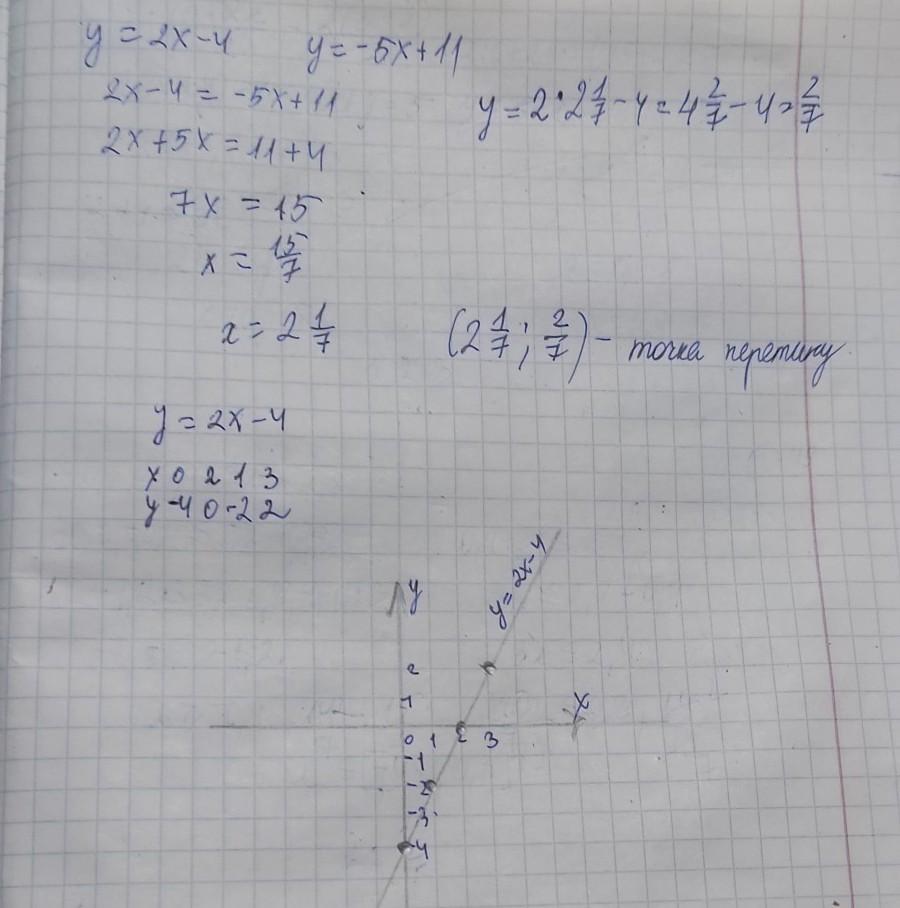 y = 2x-4 y = -5x+11
2x-4 = -5x+11
2x+5x = 11+4
7x = 15
x = 15/7
x = 2 1/7
y = 2·2 1/7 - 4 = 4 2/7 - 4 = 2/7
(2 1/7; 2/7) - точка перетину
y = 2x-4
x 0 2 1 3
y -4 0 -2 2
y
y=2x-4
2
1
x
0 1 2 3
-1
-2
-3
-4